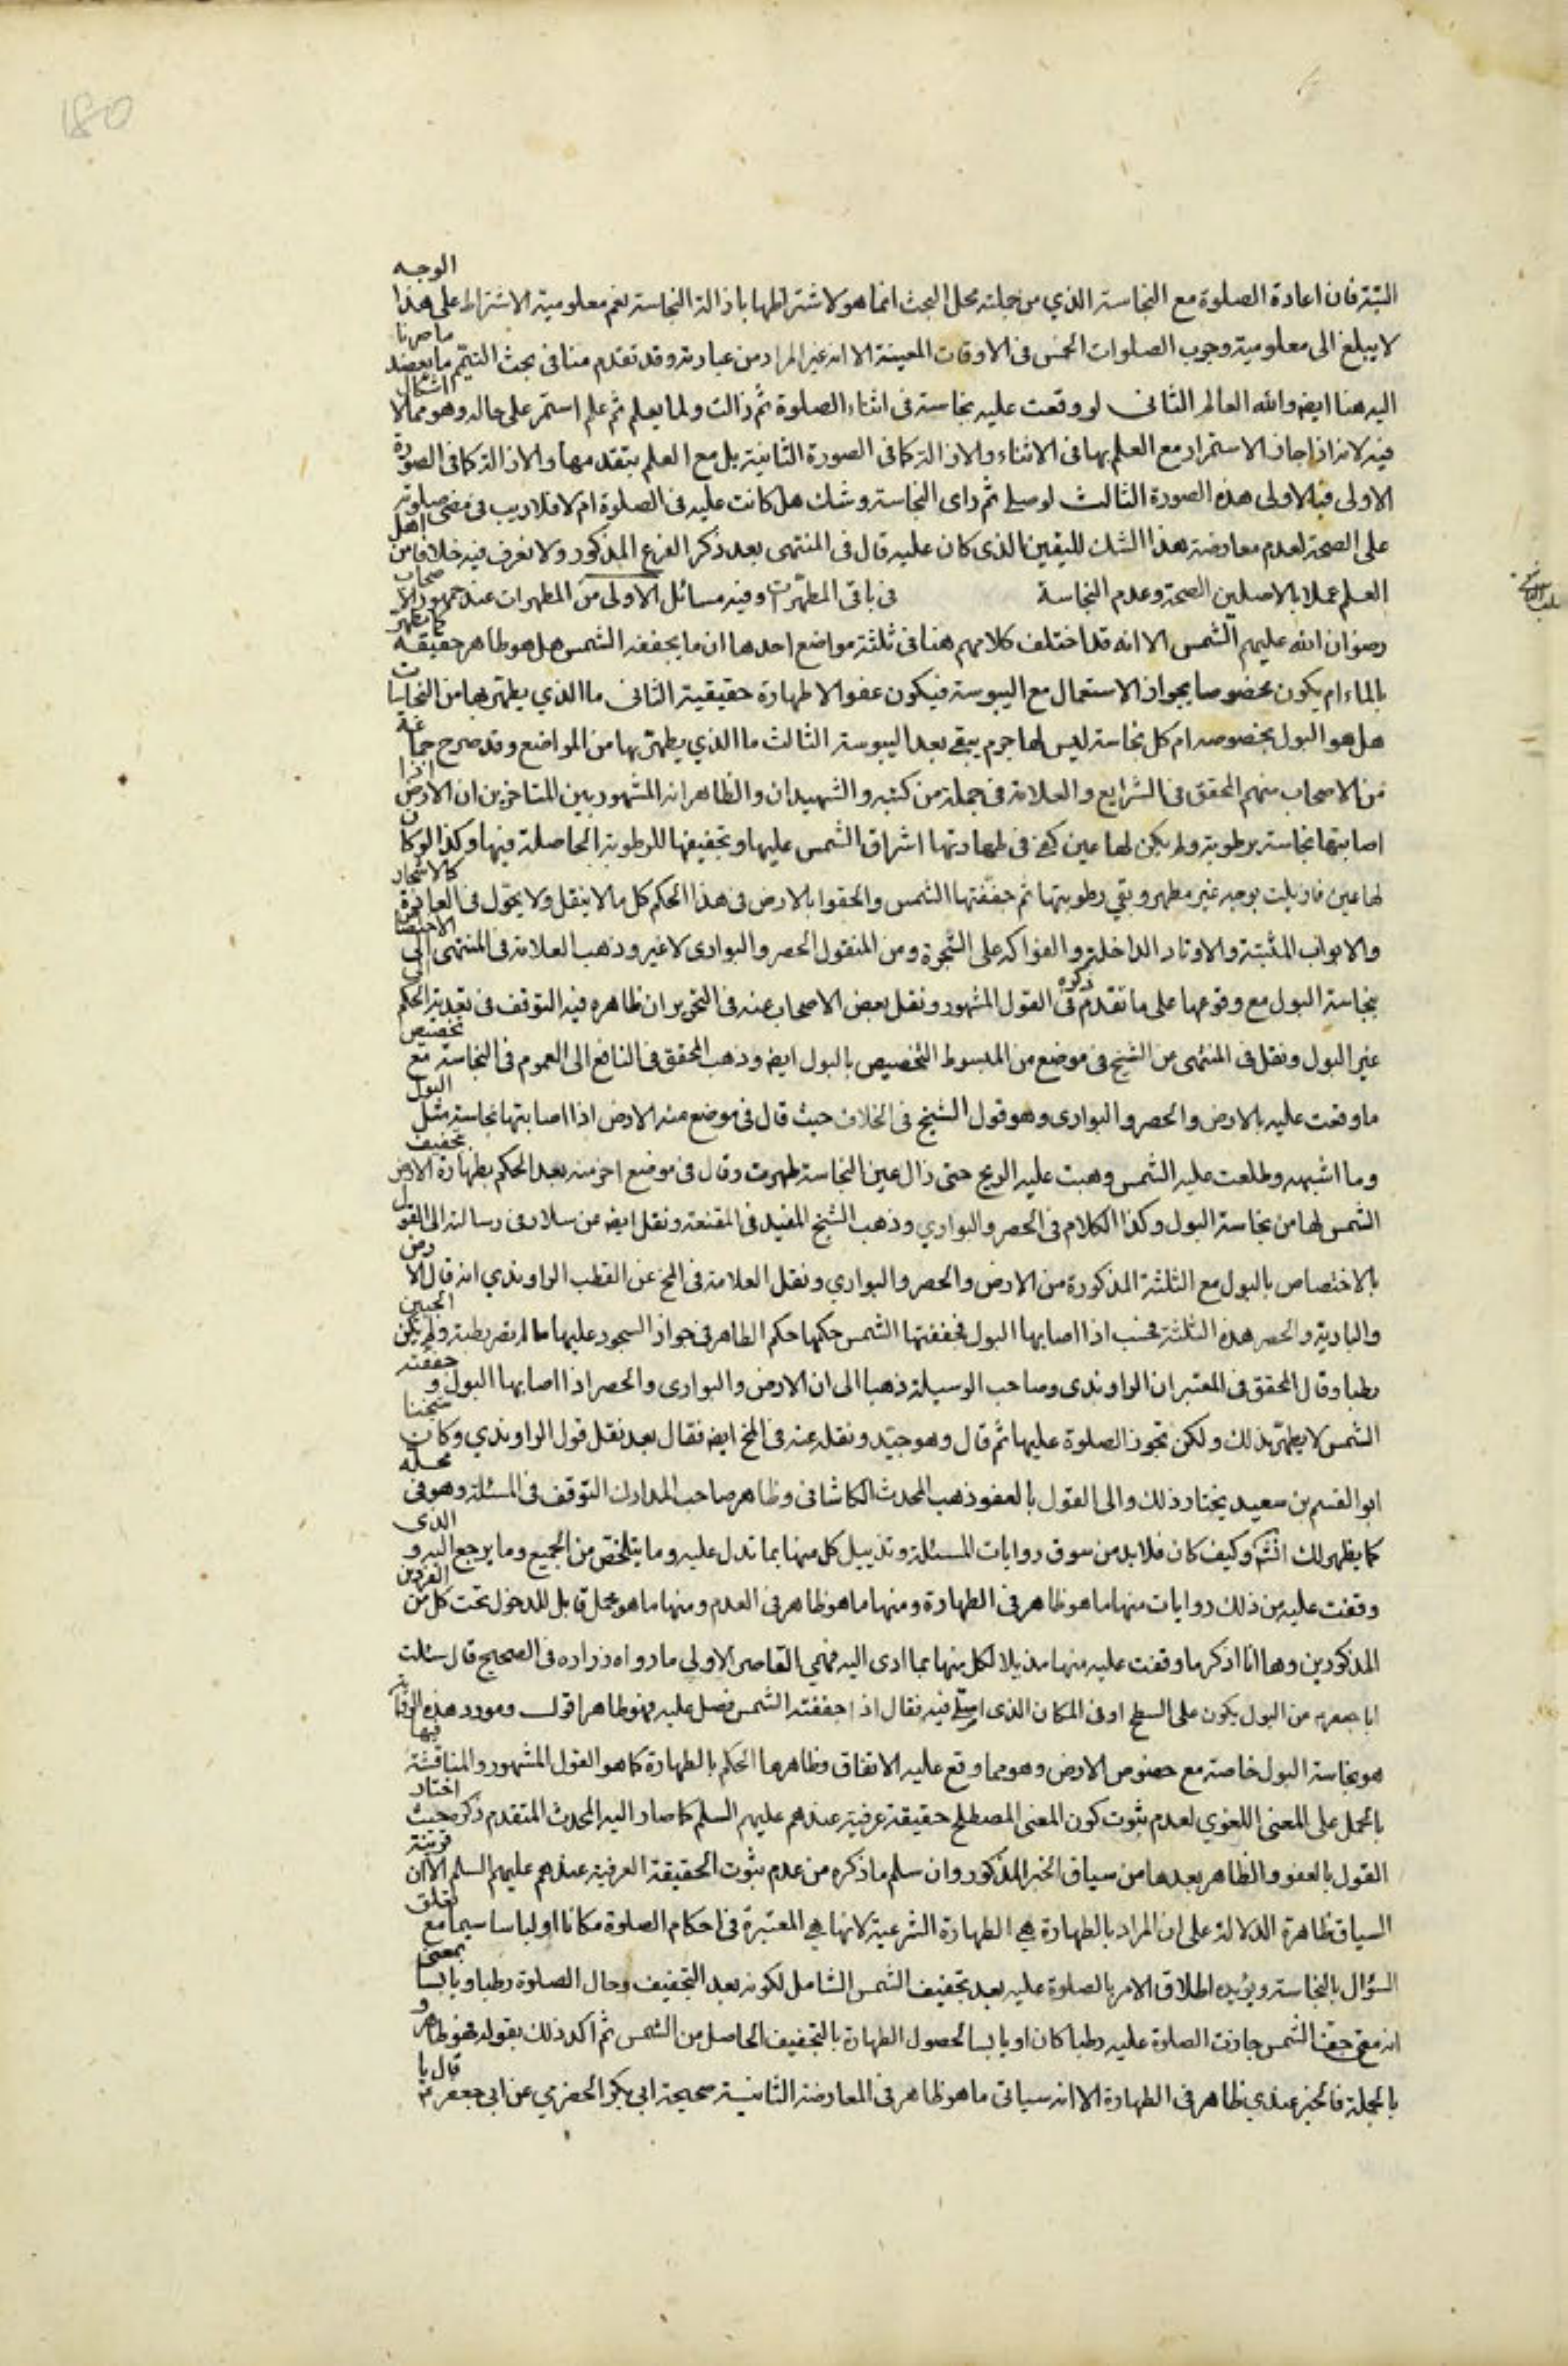 180
البتة فان اعادة الصلوة مع النجاسة الذي من جملته محل البحث انما هو لاشتراطها باذالة النجاسة نعم معلومية الاشتراط على هذا الوجه
لا يبلغ الى معلومية وجوب الصلوات الخمس فى الاوقات المعينة الا انه غير المراد من عبارته وقد تقدم منا فى بحث التيمم ما يعضد ما صرنا
اليه هنا ايض والله العالم الثانى لو وقعت عليه نجاسة فى اثناء الصلوة ثم زالت ولما يعلم ثم علم استمر على حاله وهو مما لا اشكال
فيه لانه اذا جاز الاستمرار مع العلم بها فى الاثناء والازالة كما فى الصورة الثانية بل مع العلم بتقدمها والازالة كما فى الصورة
الاولى فبالاولى هذه الصورة الثالث لو صلى ثم راى النجاسة وشك هل كانت عليه فى الصلوة ام لا فلا ريب فى مضى صلوته
على الصحة لعدم معارضة هذا الشك لليقين الذى كان عليه قال فى المنتهى بعد ذكر الفرع المذكور ولا نعرف فيه خلافا من اهل
العلم عملا بالاصلين الصحة وعدم النجاسة فى باقى المطهرات وفيه مسائل الاولى من المطهرات عند جمهور الاصحاب
رضوان الله عليهم الشمس الا انه قد اختلف كلامهم هنا فى ثلثة مواضع احدها ان ما يجففه الشمس هل هو طاهر حقيقة كما يطهر
بالماء ام يكون مخصوصا بجواز الاستعمال مع اليبوسة فيكون عفوا لا طهارة حقيقية الثانى ما الذي يطهر بها من النجاسات
هل هو البول بخصوصه ام كل نجاسة ليس لها جرم يبقى بعد اليبوسة الثالث ما الذي يطهر بها من المواضع وقد صرح جماعة
من الاصحاب منهم المحقق فى الشرايع والعلامة فى جملة من كتبه والشهيدان والظاهر انه المشهور بين المتاخرين ان الارض اذا
اصابتها نجاسة برطوبة ولم يكن لها عين كفى فى طهارتها اشراق الشمس عليها وتجفيفها للرطوبة الحاصلة فيها وكذا لو كان
لها عين فازيلت بوجه غير مطهر وبقي رطوبتها ثم جففتها الشمس والحقوا بالارض فى هذا الحكم كل ما لا ينقل ولا يحول فى العادة كالاشجار
والابواب المثبتة والاوتاد الداخلة والفواكه على الشجرة ومن المنقول الحصر والبوارى لا غير وذهب العلامة فى المنتهى الى الاختصاص
بنجاسة البول مع وقوعها على ما تقدم ذكره فى القول المشهور ونقل بعض الاصحاب عنه فى التحرير ان ظاهره فيه التوقف فى تعدية الحكم الى
غير البول ونقل فى المنتهى عن الشيخ فى موضع من المبسوط التخصيص بالبول ايض وذهب المحقق فى النافع الى العموم فى النجاسة مع تخصيص
ما وقعت عليه بالارض والحصر والبوارى وهو قول الشيخ فى الخلاف حيث قال فى موضع منه الارض اذا اصابتها نجاسة مثل البول
وما اشبهه وطلعت عليه الشمس وهبت عليه الريح حتى زال عين النجاسة طهرت وقال فى موضع اخر منه بعد الحكم بطهارة الارض بتجفيف
الشمس لها من نجاسة البول وكذا الكلام فى الحصر والبواري وذهب الشيخ المفيد فى المقنعة ونقل ايض عن سلار فى رسالته الى القول
بالاختصاص بالبول مع الثلثة المذكورة من الارض والحصر والبواري ونقل العلامة فى المخ عن القطب الراوندي انه قال الارض
والبارية والحصر هذه الثلثة فحسب اذا اصابها البول فجففتها الشمس حكمها حكم الطاهر فى جواز السجود عليها ما لم تصر رطبة ولم يكن الجبين
رطبا وقال المحقق فى المعتبر ان الراوندى وصاحب الوسيلة ذهبا الى ان الارض والبوارى والحصر اذا اصابها البول و جففته
الشمس لا يطهر بذلك ولكن تجوز الصلوة عليها ثم قال وهو جيد ونقله عنه فى المخ ايض فقال بعد نقل قول الراوندي وكان شيخنا
ابو القسم بن سعيد يختار ذلك والى القول بالعفو ذهب المحدث الكاشانى وظاهر صاحب المدارك التوقف فى المسئلة وهو فى محله
كما يظهر لك انشئه وكيف كان فلا بد من سوق روايات المسئلة وتذييل كل منها بما تدل عليه وما يتلخص من الجميع وما يرجع اليه و الذى
وقفت عليه من ذلك روايات منها ما هو ظاهر فى الطهارة ومنها ما هو ظاهر فى العدم ومنها ما هو مجمل قابل للدخول تحت كل من الفردين
المذكورين وها انا اذكر ما وقفت عليه منها مذيلا لكل منها بما ادى اليه فهمي القاصر الاولى ما رواه زراره فى الصحيح قال سئلت
ابا جعفر ع من البول يكون على السطح او فى المكان الذى اصلى فيه فقال اذا جففته الشمس فصل عليه فهو طاهر اقول ومورد هذه الرواية
هو نجاسة البول خاصة مع خصوص الارض وهو مما وقع عليه الاتفاق وظاهرها الحكم بالطهارة كما هو القول المشهور والمناقشة فيها
بالحمل على المعنى اللغوي لعدم ثبوت كون المعنى المصطلح حقيقة عرفية عندهم عليهم السلم كما صار اليه المحدث المتقدم ذكره حيث اختار
القول بالعفو والظاهر بعدها من سياق الخبر المذكور وان سلم ما ذكره من عدم ثبوت الحقيقة العرفية عندهم عليهم السلم الا ان قرينة
السياق ظاهرة الدلالة على ان المراد بالطهارة هي الطهارة الشرعية لانها هي المعتبرة فى احكام الصلوة مكانا او لباسا سيما مع تعلق
السؤال بالنجاسة ويؤيده اطلاق الامر بالصلوة عليه بعد تجفيف الشمس الشامل لكونه بعد التجفيف وحال الصلوة رطبا ويابسا بمعنى
انه متى جففتها الشمس جازت الصلوة عليه رطبا كان او يابسا لحصول الطهارة بالتجفيف الحاصل من الشمس ثم اكد ذلك بقوله فهو طاهر و
بالجملة فالخبر عندي ظاهر فى الطهارة الا انه سياتى ما هو ظاهر فى المعارضة الثانية صحيحة ابى بكر الحضرمي عن ابى جعفر ع قال يا